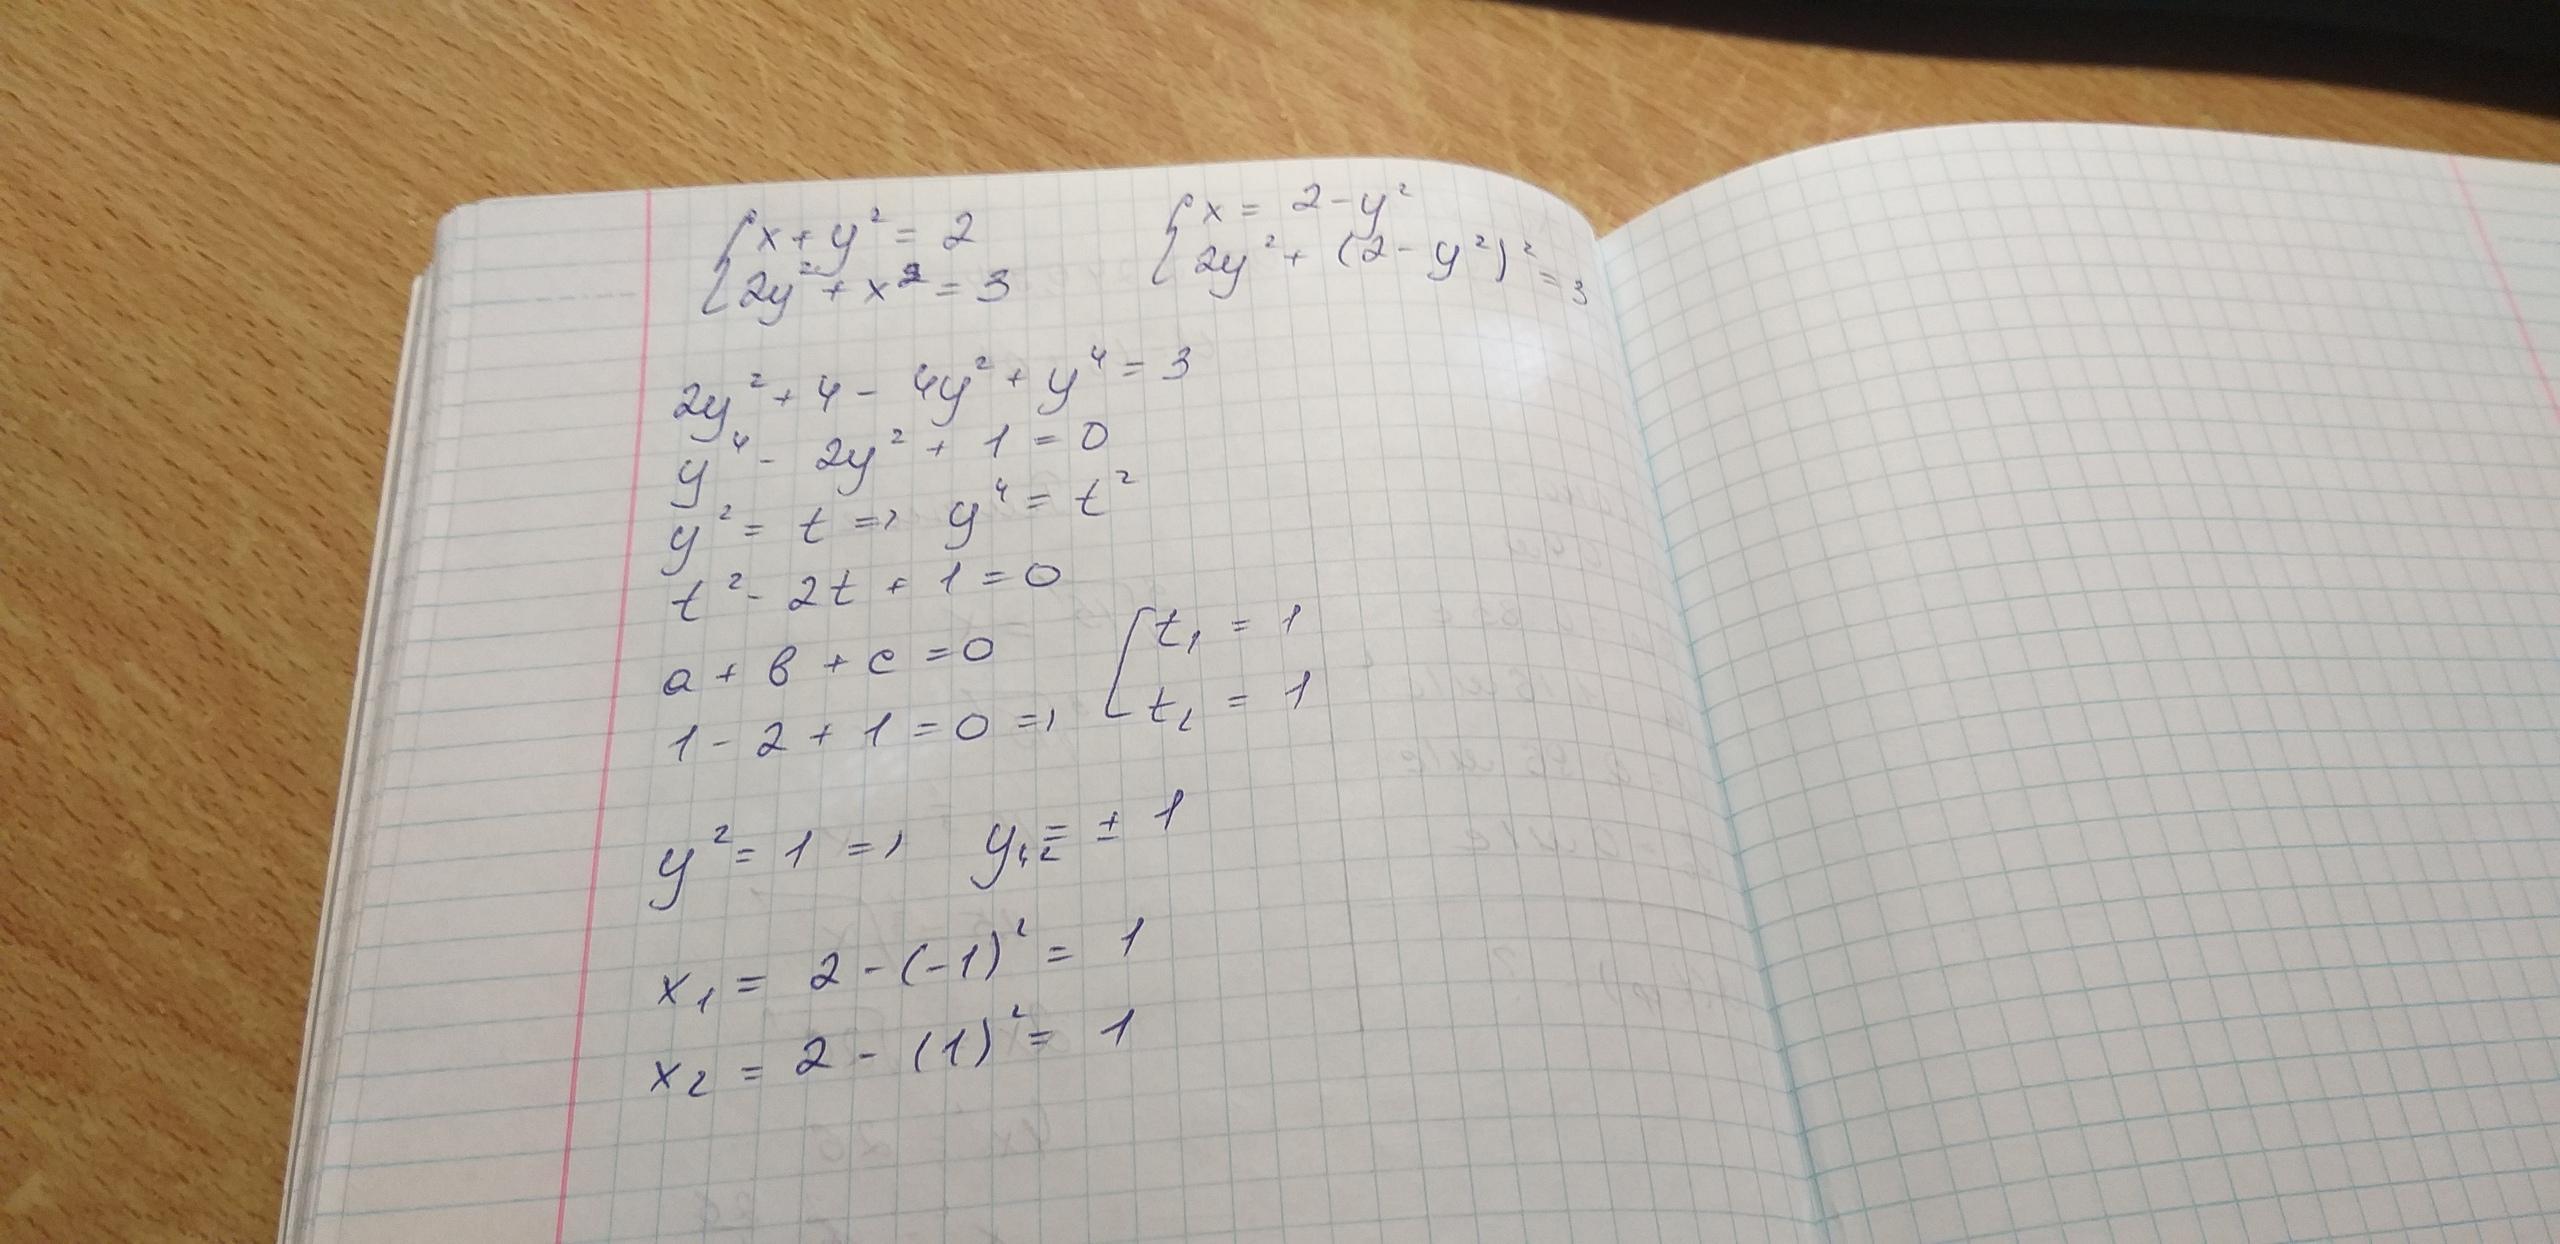 { x + y² = 2
{ 2y² + x² = 3
{ x = 2 - y²
{ 2y² + (2 - y²)² = 3
2y² + 4 - 4y² + y⁴ = 3
y⁴ - 2y² + 1 = 0
y² = t => y⁴ = t²
t² - 2t + 1 = 0
a + в + c = 0
1 - 2 + 1 = 0 => [ t₁ = 1
t₂ = 1
y² = 1 => y₁,₂ = ± 1
x₁ = 2 - (-1)² = 1
x₂ = 2 - (1)² = 1